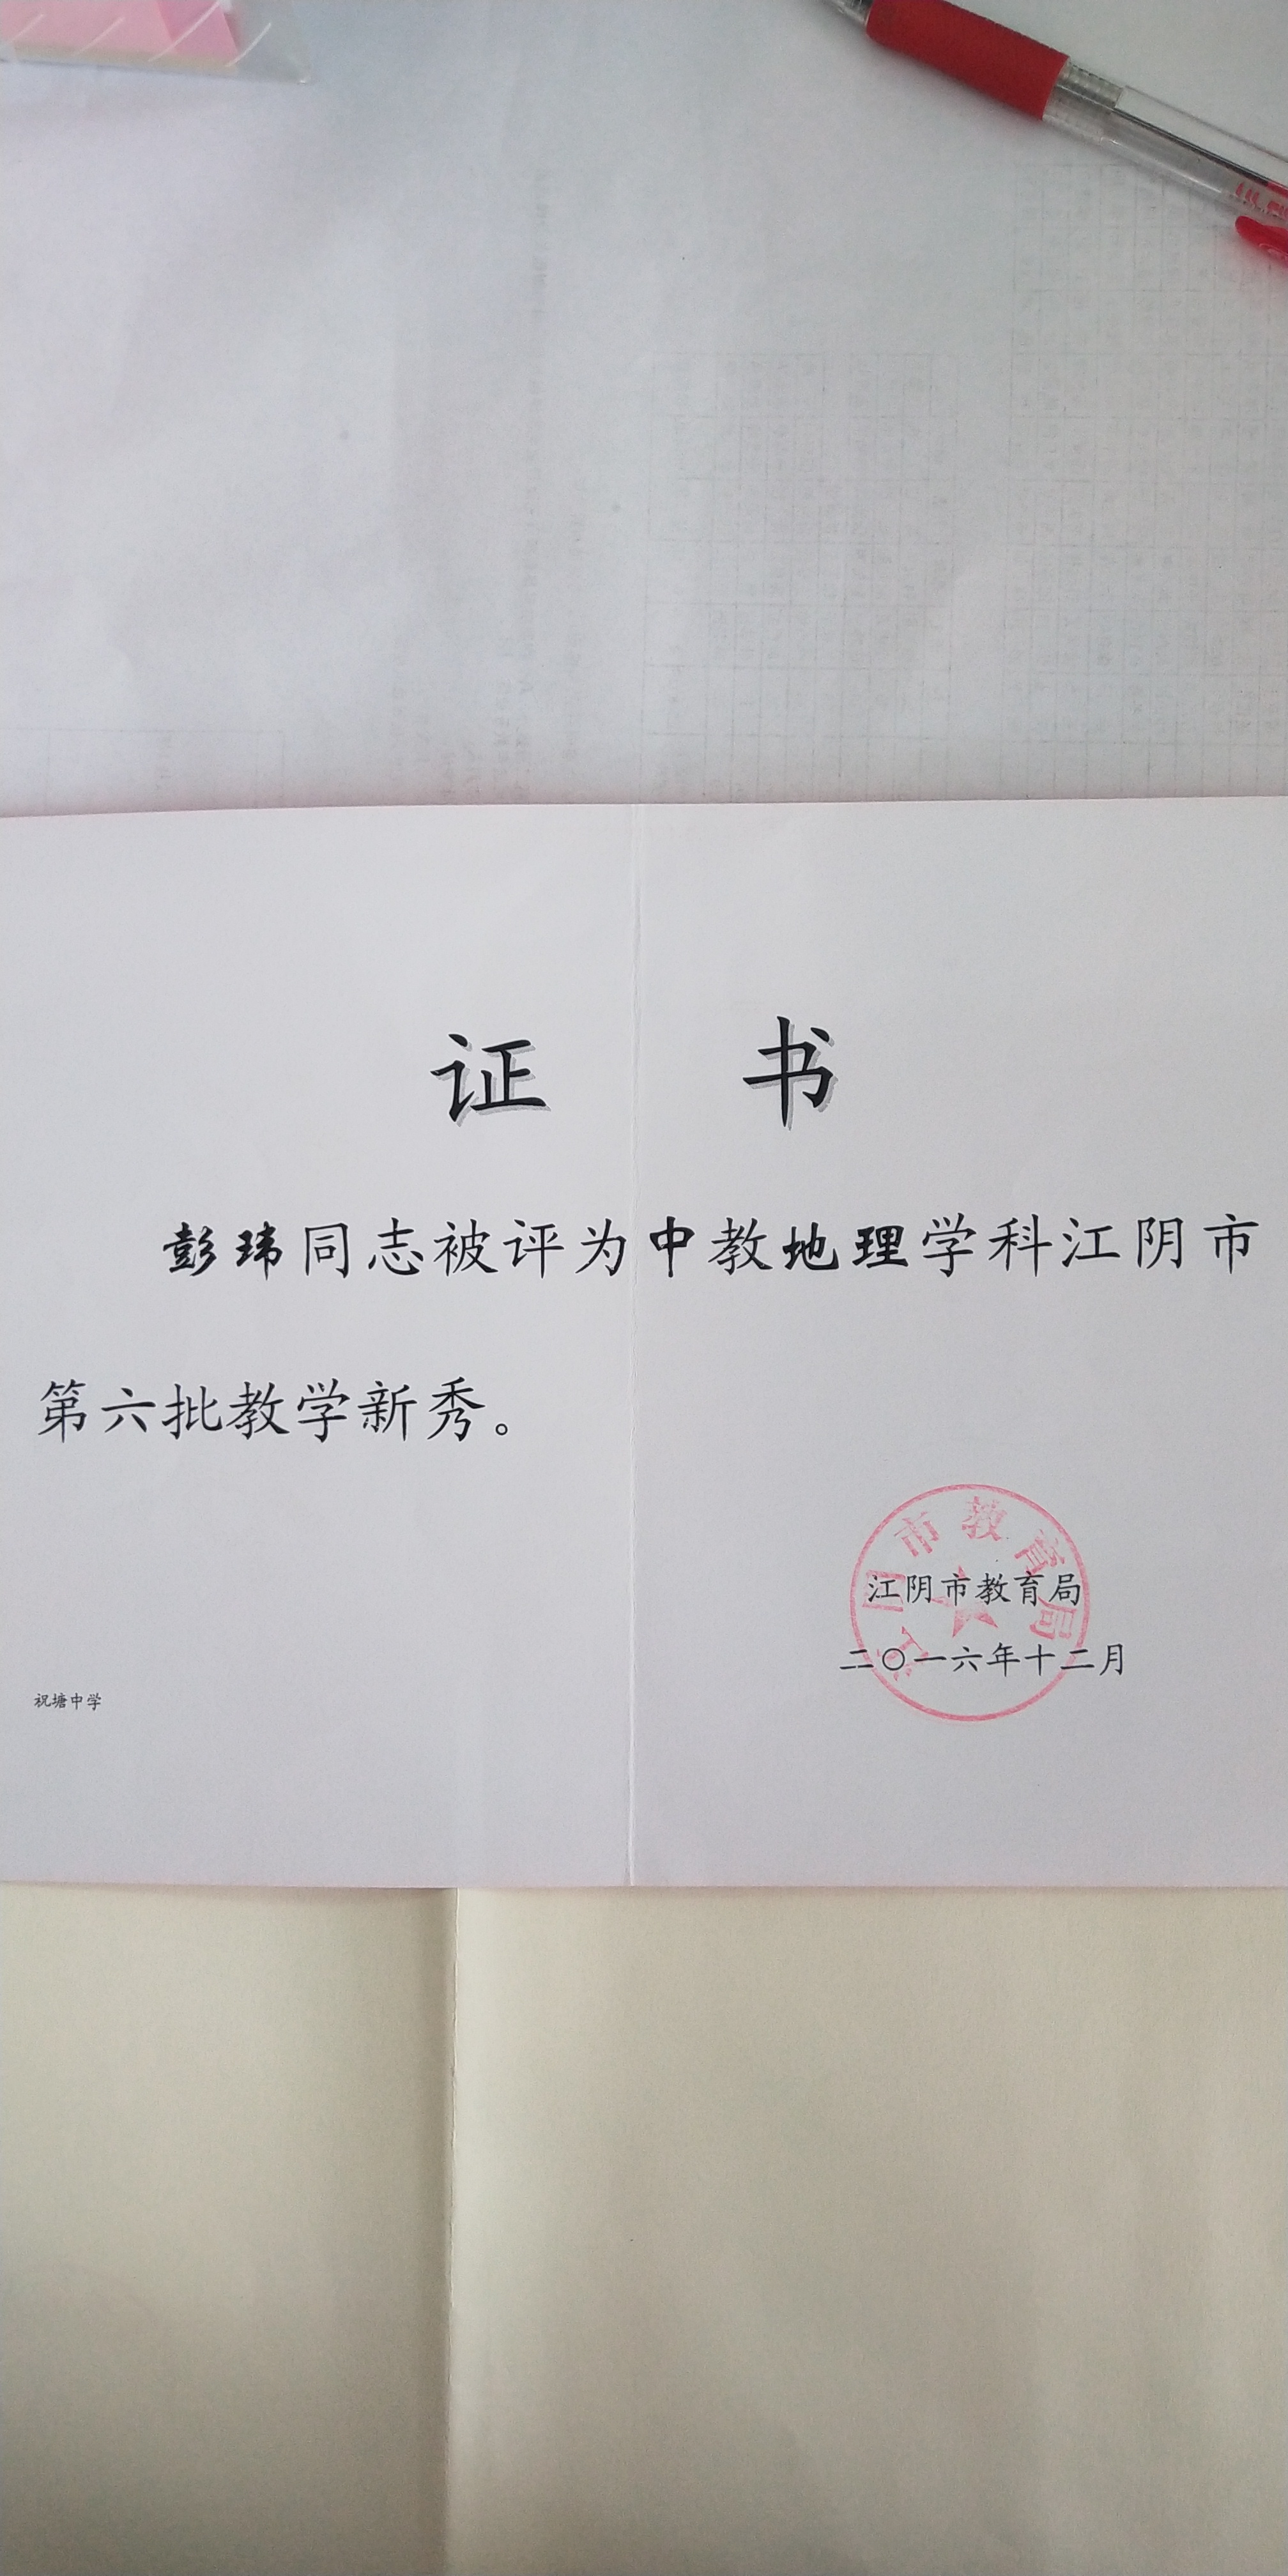 证 书
彭玮同志被评为中教地理学科江阴市
第六批教学新秀。
江阴市教育局
江阴市教育局
二〇一六年十二月
祝塘中学